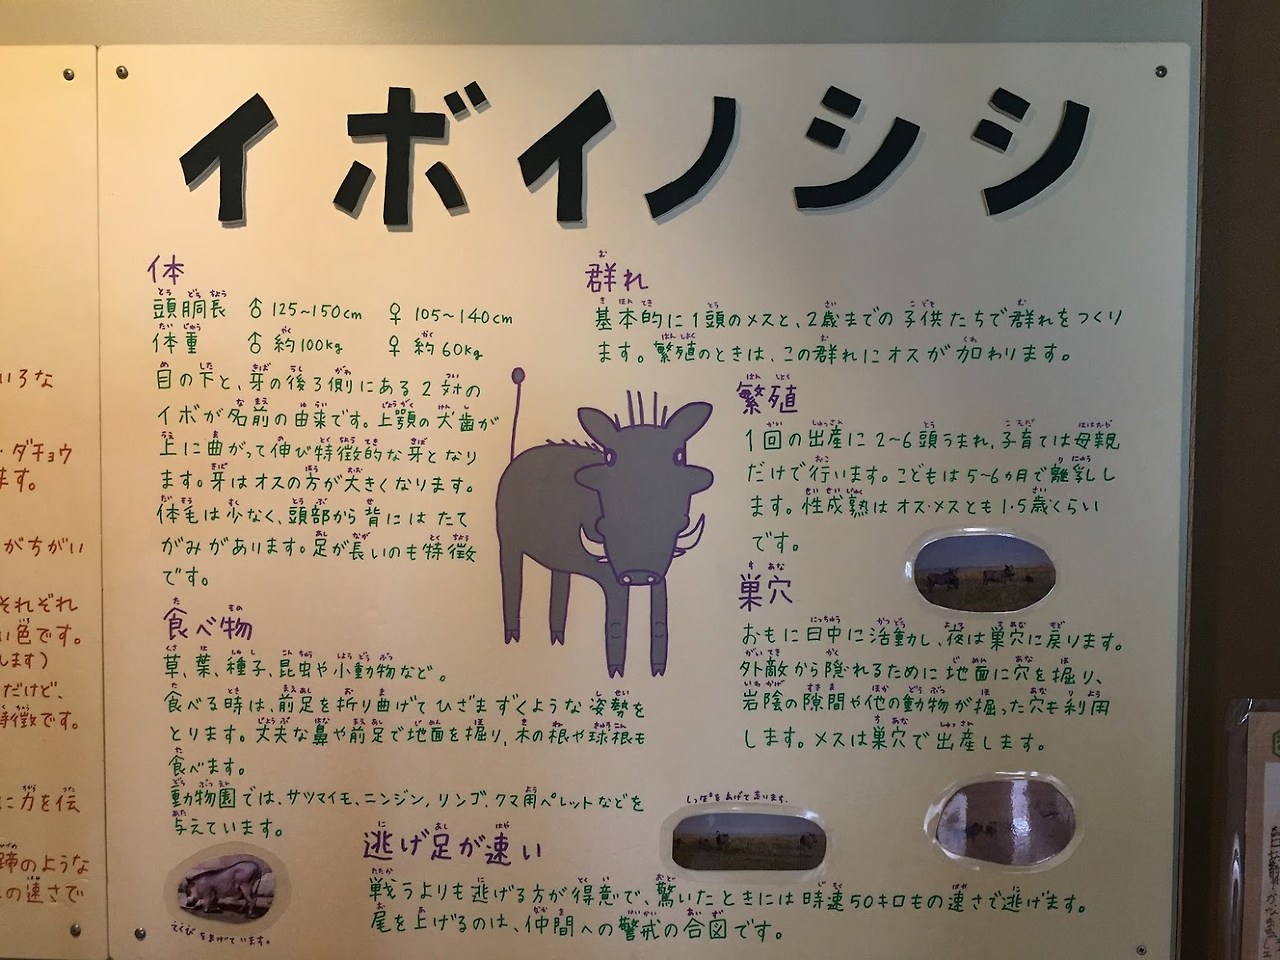 イボイノシシ
体
頭胴長 ♂125~150cm ♀105~140cm
体重 ♂約100kg ♀約60kg
目の下と、牙の後ろ側にある2対の
イボが名前の由来です。上顎の犬歯が
上に曲がって伸び特徴的な牙となり
ます。牙はオスの方が大きくなります。
体毛は少なく、頭部から背にはたて
がみがあります。足が長いのも特徴
です。
食べ物
草、葉、種子、昆虫や小動物など。
食べる時は、前足を折り曲げてひざまずくような姿勢を
とります。丈夫な鼻や前足で地面を掘り、木の根や球根も
食べます。
動物園では、サツマイモ、ニンジン、リンゴ、クマ用ペレットなどを
与えています。
群れ
基本的に1頭のメスと、2歳までの子供たちで群れをつくり
ます。繁殖のときは、この群れにオスが加わります。
繁殖
1回の出産に2~6頭うまれ、子育ては母親
だけで行います。こどもは5~6ヵ月で離乳し
ます。性成熟はオス・メスとも1.5歳くらい
です。
巣穴
おもに日中に活動し、夜は巣穴に戻ります。
外敵から隠れるために地面に穴を掘り、
岩陰の隙間や他の動物が掘った穴も利用
します。メスは巣穴で出産します。
しっぽをあげて走ります。
逃げ足が速い
戦うよりも逃げる方が得意で、驚いたときには時速50キロもの速さで逃げます。
尾を上げるのは、仲間への警戒の合図です。
てくびをまげています。
いろな
・ダチョウ
ます。
がちがい
それぞれ
い色です。
します)
だけど、
特徴です。
に力を伝
蹄のような
の速さで